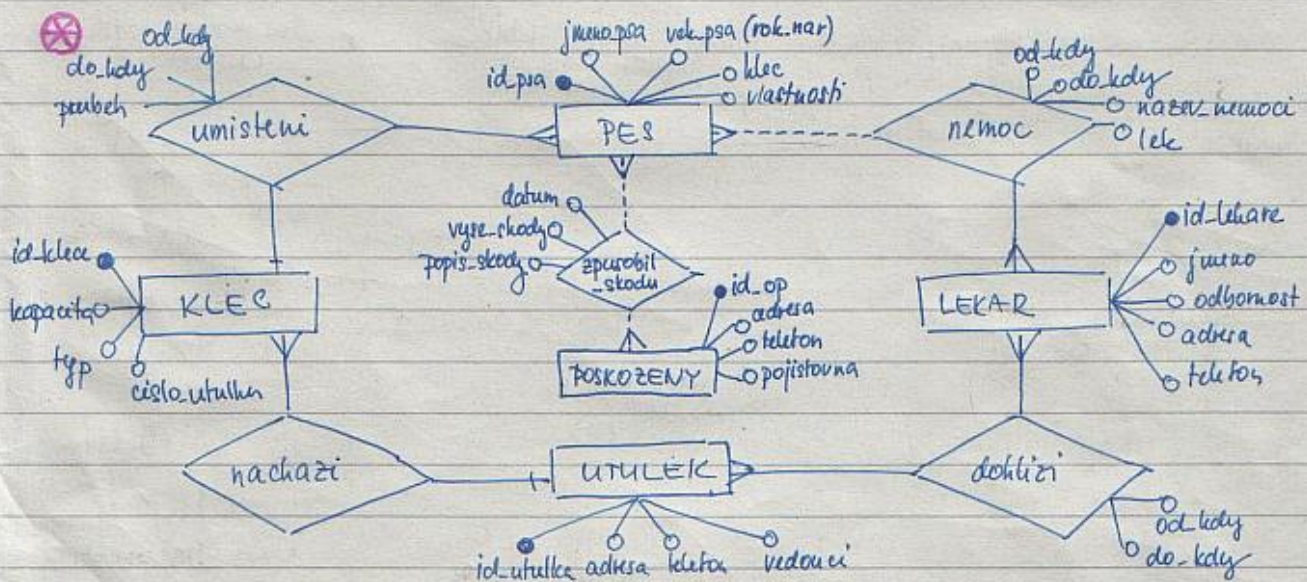 od_kdy
do_kdy
prubeh
umisteni
jmeno_psa
vek_psa (rok_nar)
id_psa
klec
vlastnosti
PES
od_kdy
do_kdy
nazev_nemoci
lek
nemoc
datum
vyse_skody
popis_skody
zpusobil
_skodu
id_klece
kapacita
typ
cislo_utulku
KLEC
id_op
adresa
telefon
pojistovna
POSKOZENY
id_lekare
jmeno
odbornost
adresa
telefon
LEKAR
nachazi
UTULEK
dohlizi
od_kdy
do_kdy
id_utulku
adresa
telefon
vedouci